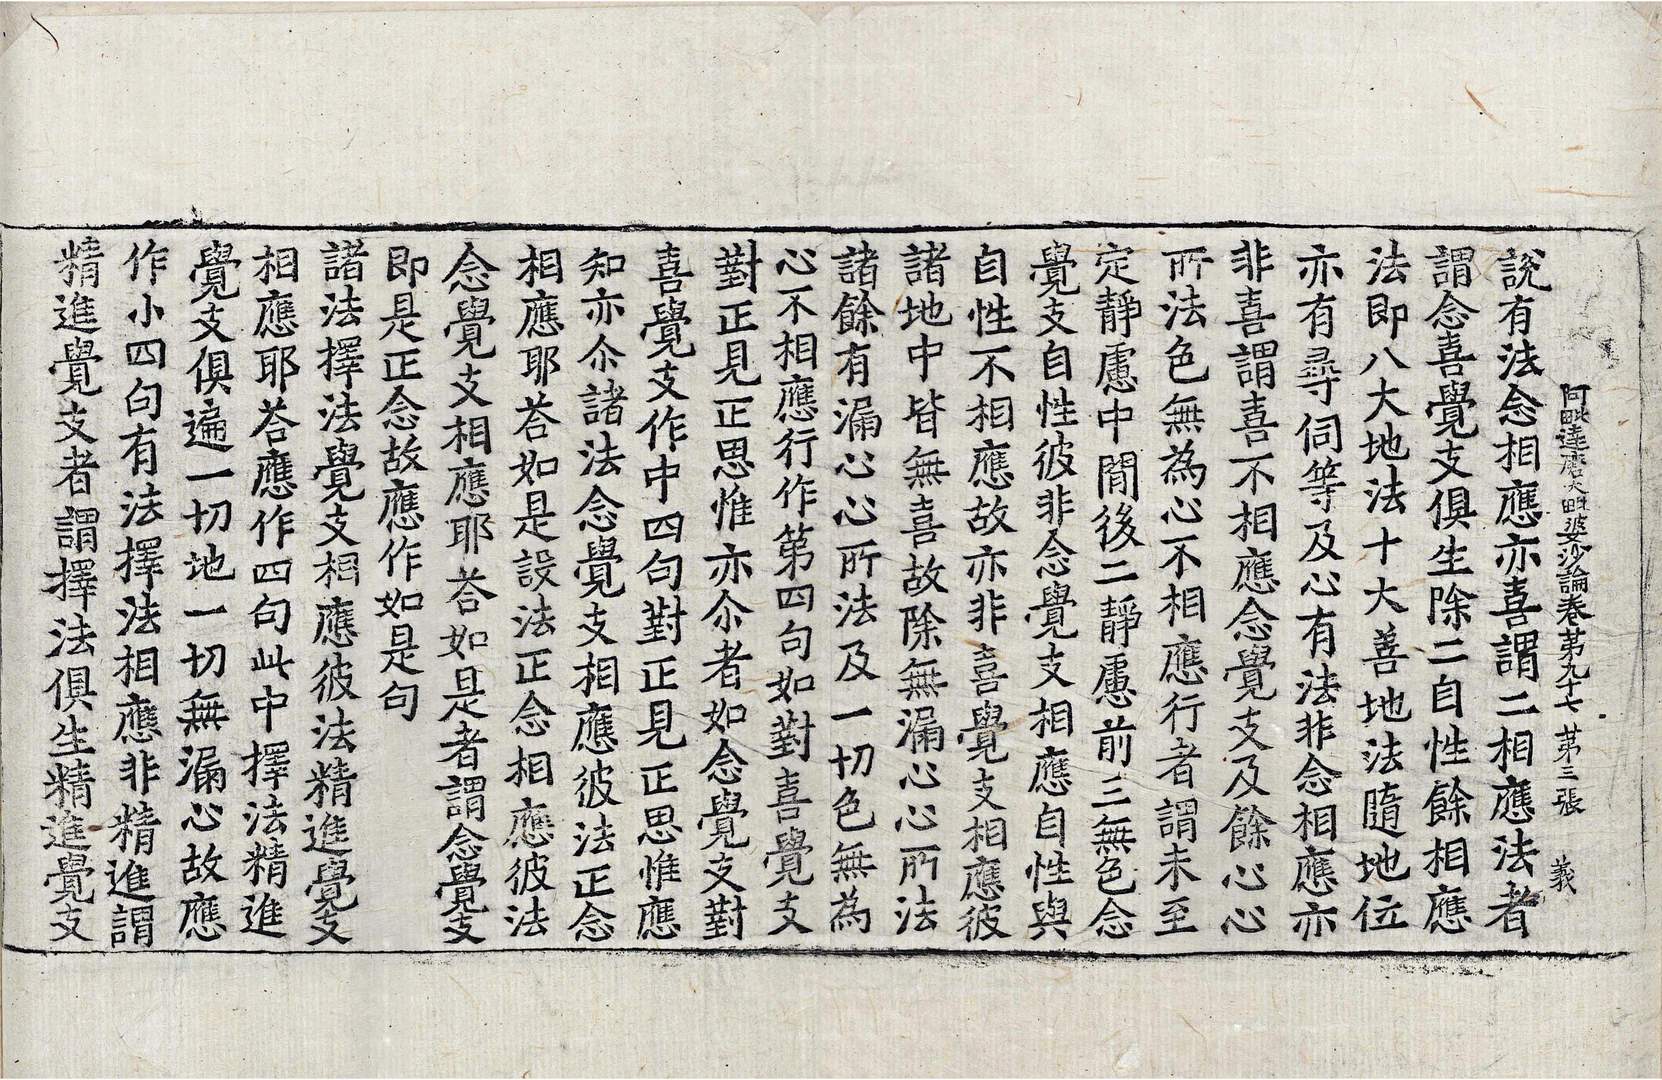 阿毗達磨大毗婆沙論卷第九十七 第三張 義
說有法念相應亦喜謂二相應法者
謂念喜覺支俱生除二自性餘相應
法即八大地法十大善地法隨地位
亦有尋伺等及心有法非念相應亦
非喜謂喜不相應念覺支及餘心心
所法色無為心不相應行者謂未至
定靜慮中閒後二靜慮前三無色念
覺支自性彼非念覺支相應自性與
自性不相應故亦非喜覺支相應彼
諸地中皆無喜故除無漏心心所法
諸餘有漏心心所法及一切色無為
心不相應行作第四句如對喜覺支
對正見正思惟亦尒者如念覺支對
喜覺支作中四句對正見正思惟應
知亦尒諸法念覺支相應彼法正念
相應耶荅如是設法正念相應彼法
念覺支相應耶荅如是者謂念覺支
即是正念故應作如是句
諸法擇法覺支相應彼法精進覺支
相應耶荅應作四句此中擇法精進
覺支俱遍一切地一切無漏心故應
作小四句有法擇法相應非精進謂
精進覺支者謂擇法俱生精進覺支